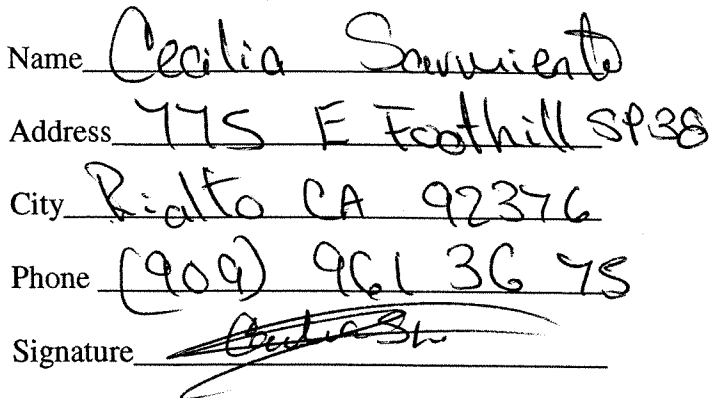 Name Cecilia Sarmiento
Address 775 E Foothill SP38
City Rialto CA 92376
Phone (909) 961 36 75
Signature